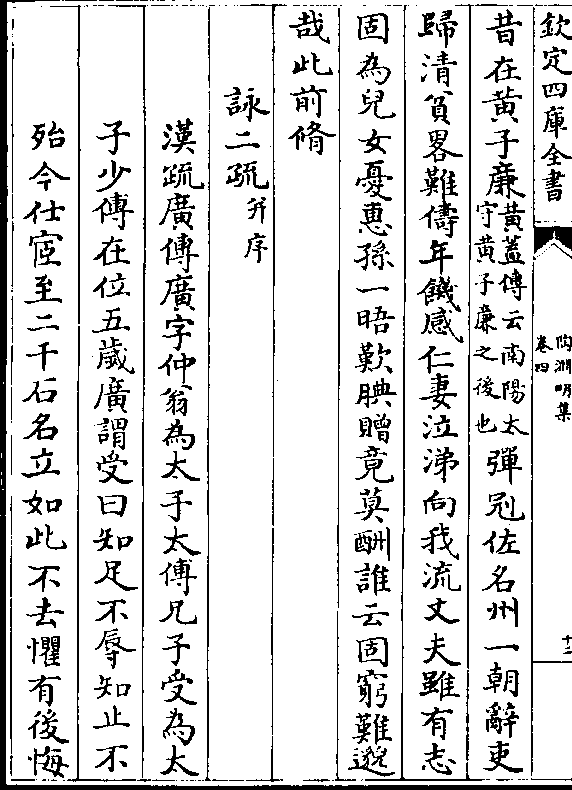 欽定四庫全書
陶淵明集
卷四
十二
昔在黃子廉黃蓋傳云南陽太守黃子廉之後也彈冠佐名州一朝辭吏
歸清貧畧難儔年饑感仁妻泣涕向我流丈夫雖有志
固為兒女憂惠孫一晤歎腆贈竟莫酬誰云固窮難邈
哉此前脩
詠二疏并序
漢疏廣傳廣字仲翁為太子太傅兄子受為太
子少傅在位五歲廣謂受曰知足不辱知止不
殆今仕宦至二千石名立如此不去懼有後悔